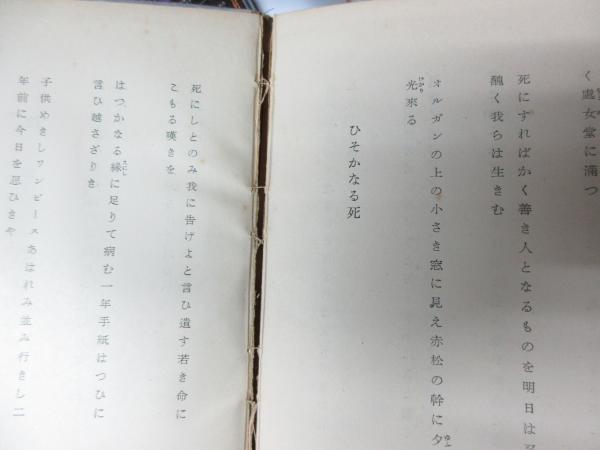 く處女堂に滿つ
死にすればかく善き人となるものを明日は
醜く我らは生きむ
オルガンの上の小さき窓に見え赤松の幹に夕
光來る
ひそかなる死
死にしとのみ我に告げよと言ひ遺す若き命に
こもる嘆きを
はつかなる緣に足りて病む一年手紙はつひに
言ひ越さざりき
子供めきしワンピースあはれみ並み行きし二
年前に今日を思ひきや